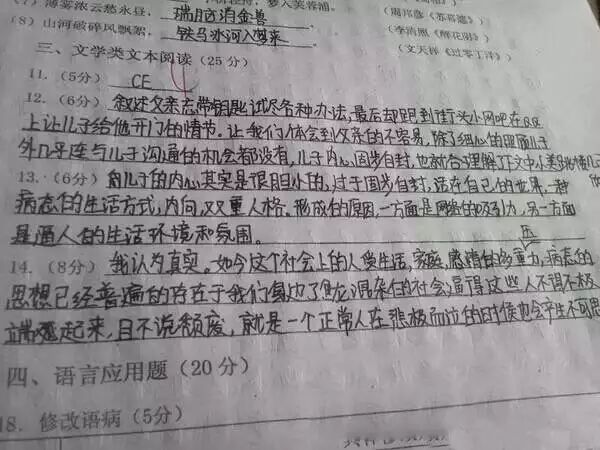 (7) 薄雾浓云愁永昼，瑞脑消金兽 (周邦彦《苏幕遮》)
(8) 山河破碎风飘絮，铁马冰河入梦来 (李清照《醉花阴》)
三、文学类文本阅读(25分) (文天祥《过零丁洋》)
11. (5分) CE
12. (6分) 叙述父亲忘带钥匙试尽各种办法，最后却跑到街头小网吧在QQ
上让儿子给他开门的情节。让我们体会到父亲的不容易，除了细心的照顾儿子
外几乎连与儿子沟通的机会都没有，儿子内心固步自封，也就
13. (6分) 儿子的内心其实是很胆小的，过于固步自封，活在自己的世界，一种
病态的生活方式，内向，双重人格。形成的原因，一方面是网络的吸引力，另一方面
是逼人的生活环境和氛围。
14. (8分) 我认为真实。如今这个社会上的人受生活，家庭，感情的多重压力，病态的
思想已经普遍的存在于我们身边了鱼龙混杂的社会逼得这些人不得不极
端起来，且不说颓废，就是一个正常人在悲极而泣的时候也会产生不可思
四、语言应用题(20分)
18. 修改语病(5分)